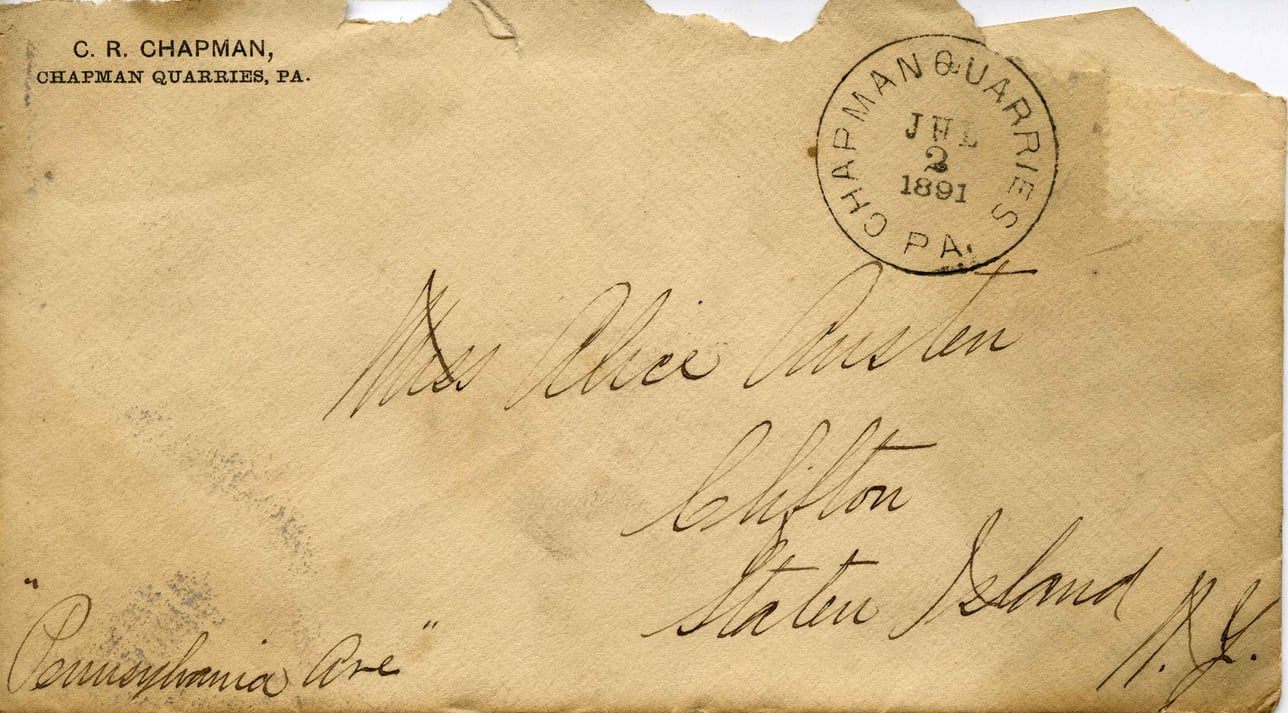 C. R. CHAPMAN,
CHAPMAN QUARRIES, PA.
CHAPMAN QUARRIES
JUL
2
1891
PA.
Miss Alice Austen
Clifton
Staten Island
N. Y.
"Pennsylvania Ave"